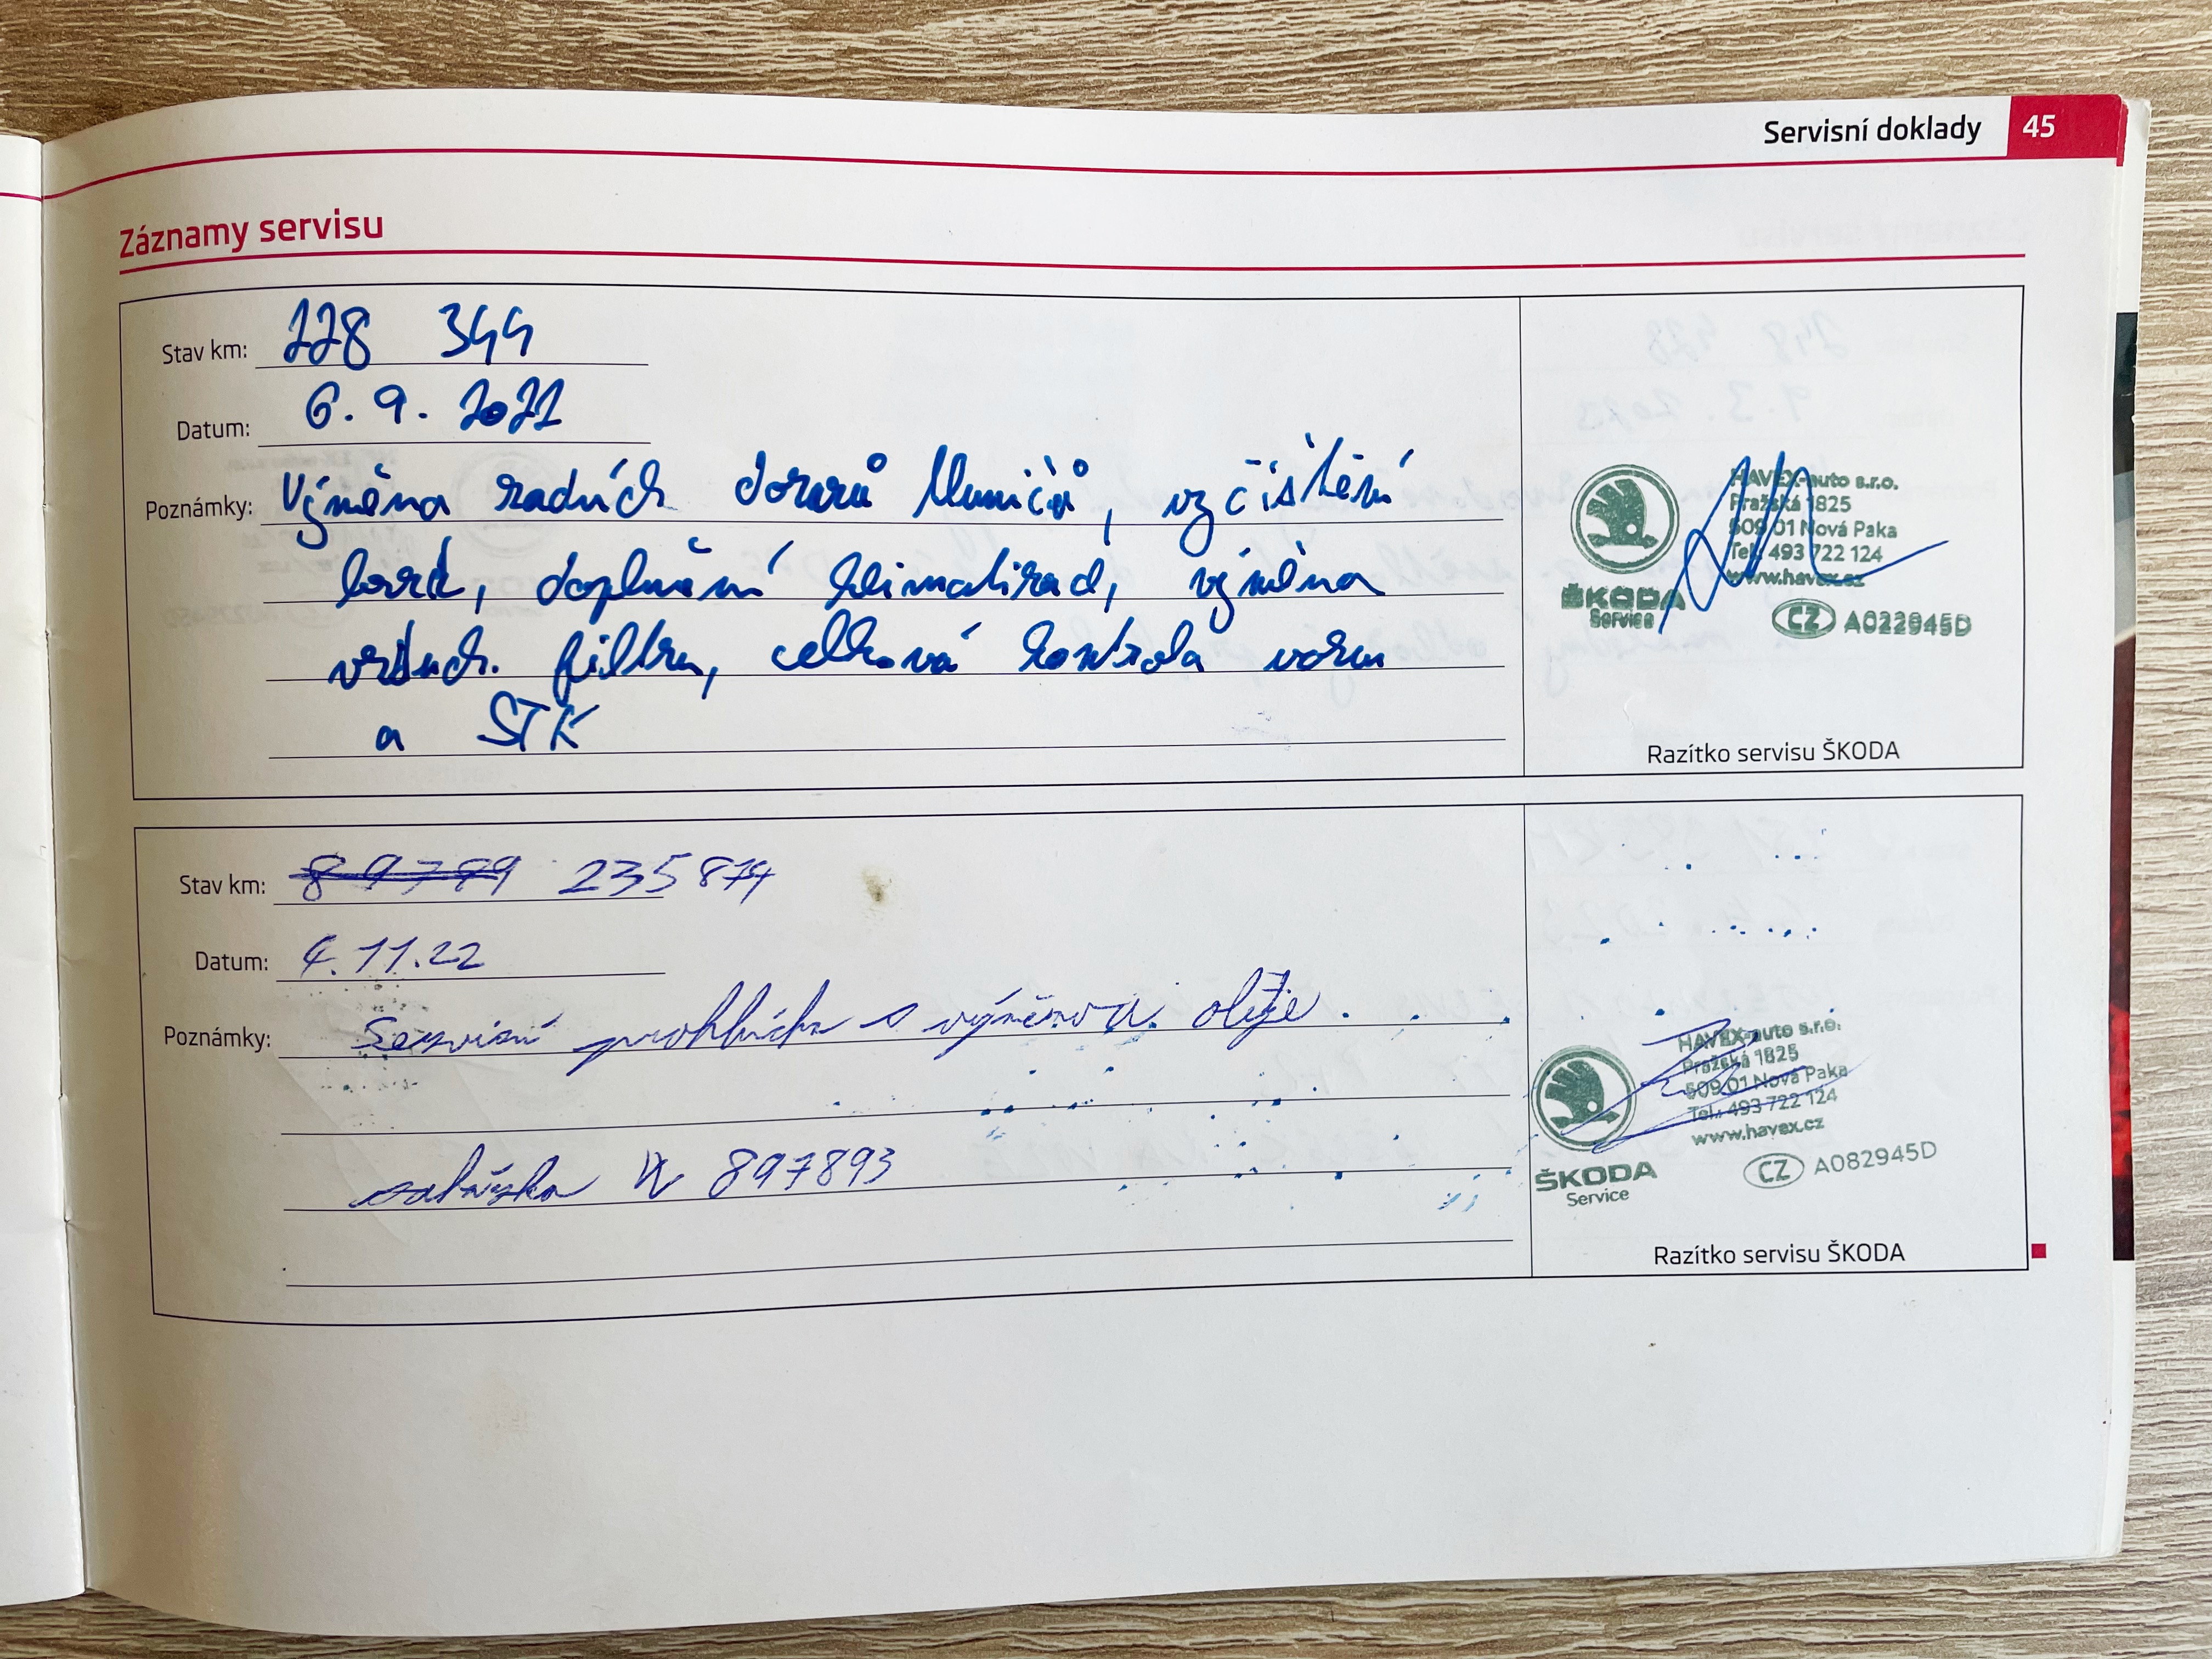 Servisní doklady 45
Záznamy servisu
Stav km: 228 344
Datum: 6. 9. 2021
Poznámky: Výměna zadních dorazů tlumičů, vyčištění
brzd, doplnění klimatizací, výměna
vzduch. filtru, celková kontrola vozu
a STK
HAVEX-auto s.r.o.
Pražská 1825
509 01 Nová Paka
Tel.: 493 722 124
www.havex.cz
ŠKODA
Service
CZ A022945D
Razítko servisu ŠKODA
Stav km: 89789 235874
Datum: 4.11.22
Poznámky: Servisní prohlídka s výměnou oleje.
zakázka 897893
HAVEX-auto s.r.o.
Pražská 1825
509 01 Nová Paka
Tel.: 493 722 124
www.havex.cz
ŠKODA
Service
CZ A082945D
Razítko servisu ŠKODA